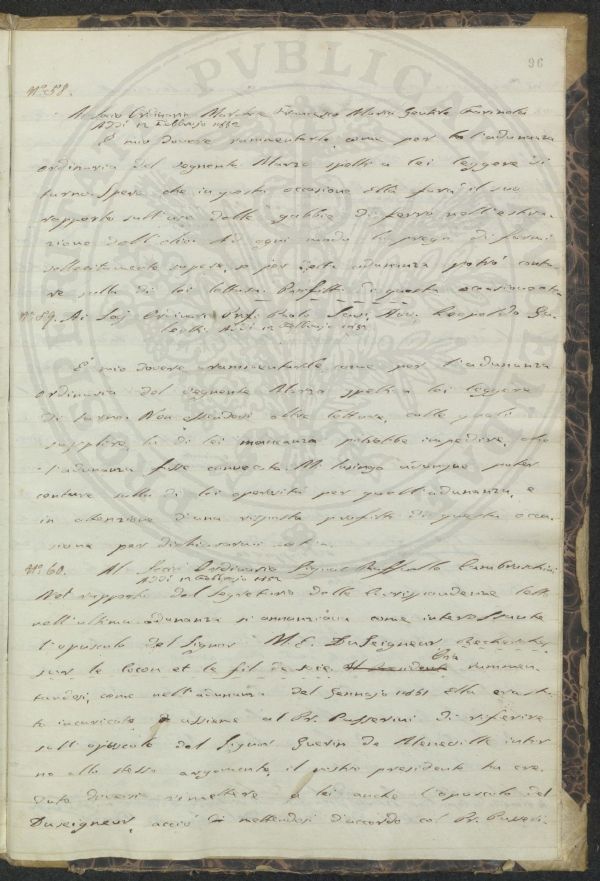 96
N.° 58.
Al Socio Ordinario Marchese Francesco Maria Gentile Farinola
Addì 12 Febbrajo 1852
È mio dovere rammentarle, come per l'adunanza
ordinaria del vegnente Marzo spetti a lei leggere di
turno. Spero che in questa occasione ella farà il suo
rapporto sull'uso delle gabbie di ferro nell'estra-
zione dell'olio. Ad ogni modo la prego di farmi
sollecitamente sapere, se per detta adunanza potrò conta-
re sulla di lei lettura. Profitto di questa occasione
N.° 59. Al Socio Ordinario Leopoldo
Addì 12 Febbrajo 1852
È mio dovere rammentarle come per l'adunanza
ordinaria del vegnente Marzo spetti a lei leggere
di turno. Non essendovi altre letture, colle quali
supplire, la di lei mancanza potrebbe impedire, che
l'adunanza fosse convocata. Mi lusingo adunque poter
contare sulla di lei operosità per quell'adunanza, e
in attenzione d'una risposta profitto di questa occa-
sione per dichiararmi
N.° 60. Al Socio Ordinario Signor Raffaello Lambruschini
Addì 12 Febbrajo 1852
Nel rapporto del Segretario delle Corrispondenze letto
nell'ultima adunanza si annunziava come interessante
l'opuscolo del Signor M. E. Duseigneur Recherches
sur le Cocon et le fil de soie. Il presidente rammen-
tandosi, come nell'adunanza del Gennajo 1851 ella era sta-
to incaricato assieme al Pr. Passerini di riferire
sull'opuscolo del Signor Guerin de Meneville inter-
no allo stesso argomento, il nostro presidente ha cre-
duto doversi rimettere a lei anche l'opuscolo del
Duseigneur, acciò mettendosi d'accordo col Pr. Passeri-